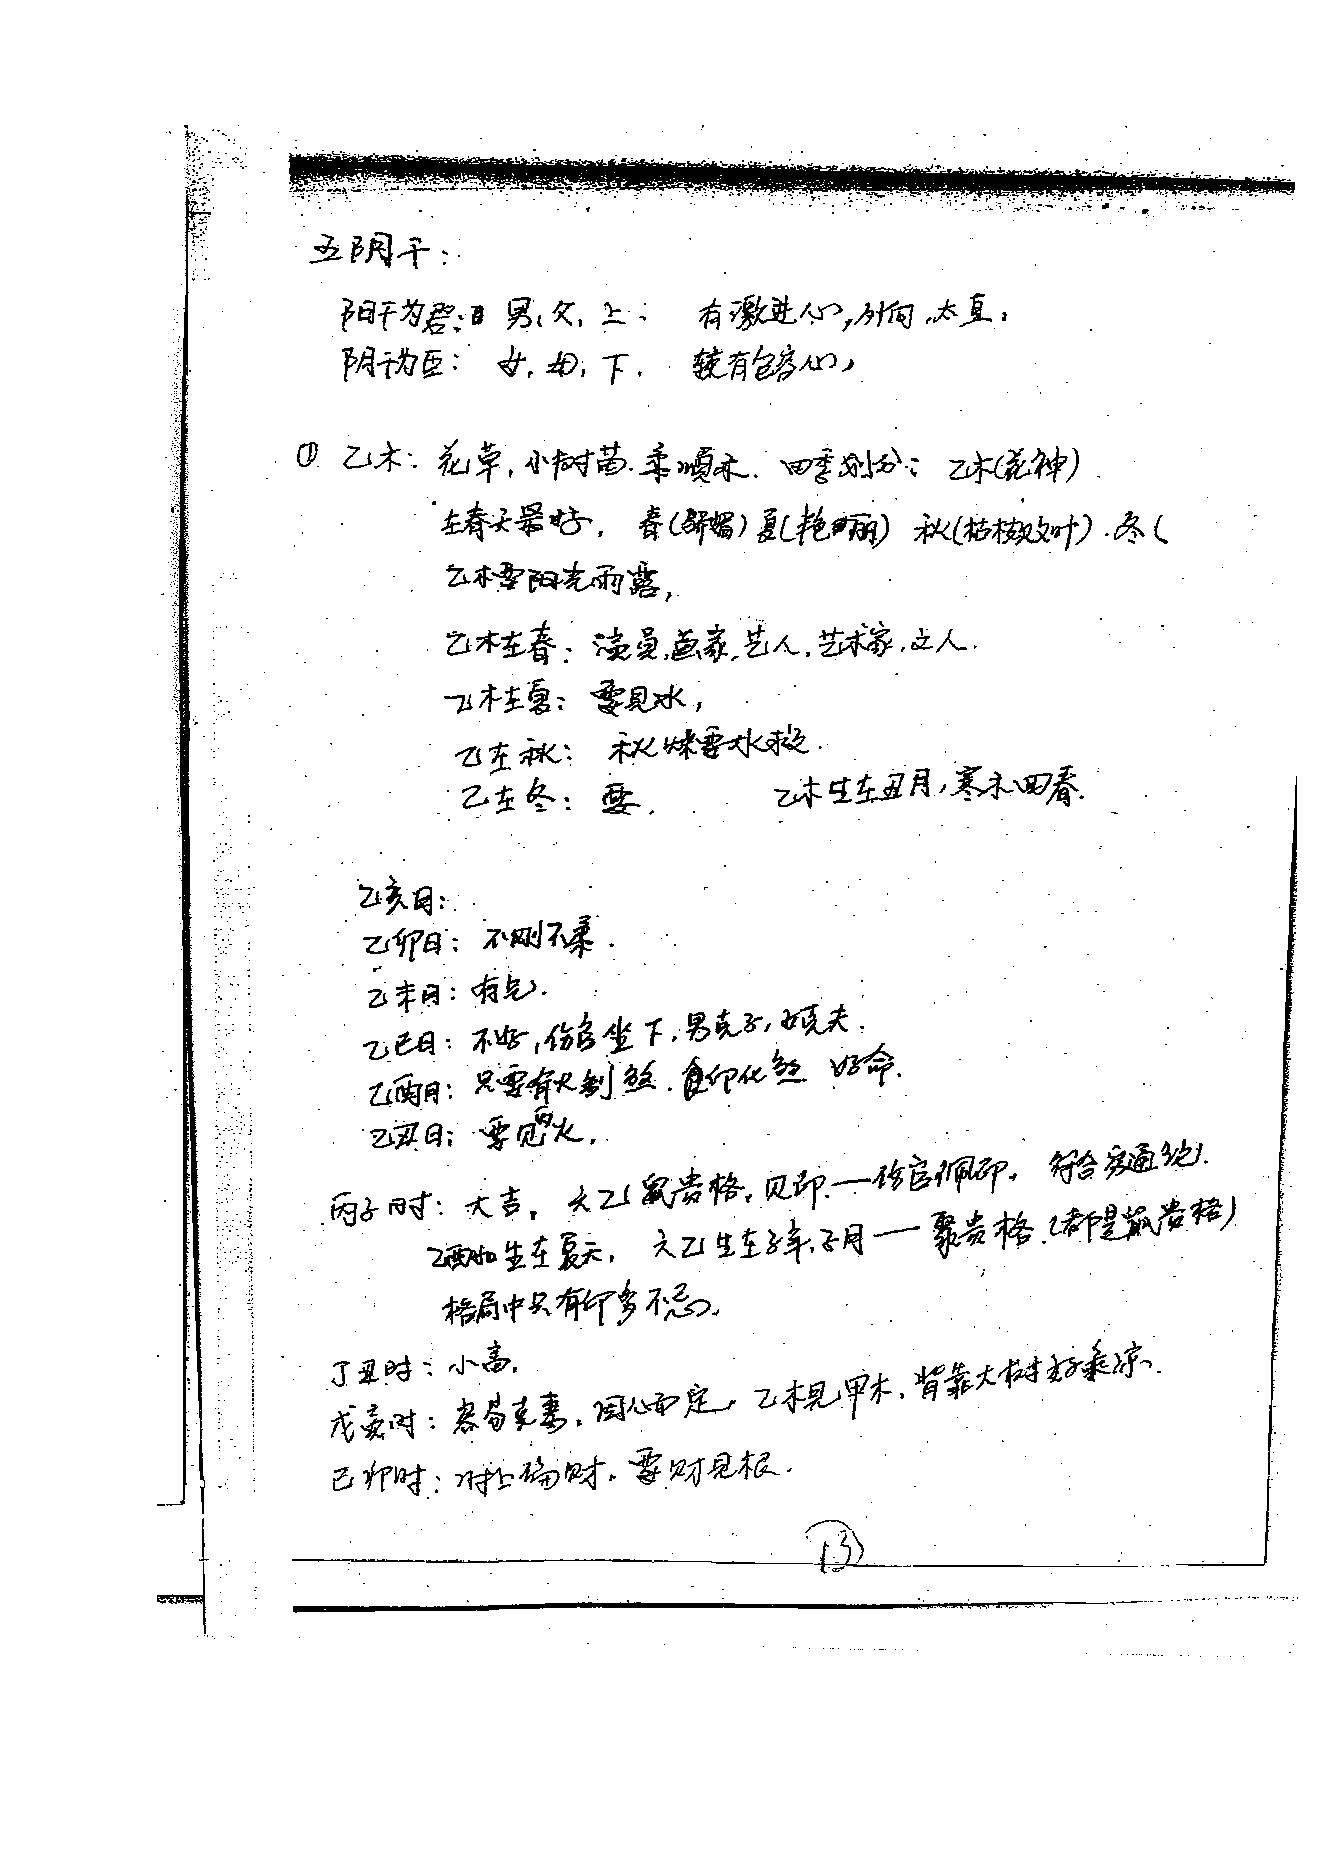 五阴干:
阳干为君: 男、父、上: 有激进心,外向,太直,
阴干为臣: 女、母、下. 较有包容心,
① 乙木: 花草,小树苗.柔顺木. 四季划分: 乙木(花神)
在春天最好, 春(娇媚)夏(艳丽) 秋(枯枝败叶).冬(
乙木要阳光雨露,
乙木在春: 演员,画家,艺人,艺术家,文人.
乙木在夏: 要见水,
乙在秋: 秋 要水救.
乙在冬: 要. 乙木生在丑月,寒木回春.
乙亥日:
乙卯日: 不刚不柔.
乙未日: 有
乙巳日: 不好,伤官坐下,男克子,女克夫.
乙酉日: 只要有火制煞. 印化煞 好命.
乙丑日: 要见丙火.
丙子时: 大吉, 六乙鼠贵格,见印.一伤官佩印, 符合
乙酉如生在夏天, 六乙生在子年,子月一聚贵格.(都是鼠贵格)
格局中只有印多不忌,
丁丑时: 小富,
戊寅时: 容易克妻,因心而定, 乙木见甲木,背靠大树好乘凉.
己卯时: 时上偏财,要财见根.
13